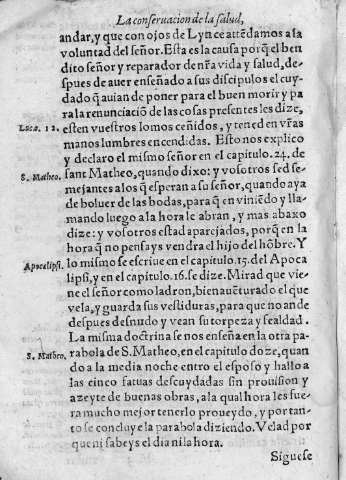 La conseruacion de la salud,
andar, y que con ojos de Lynce attẽdamos a la
voluntad del señor. Esta es la causa porq̃ el ben
dito señor y reparador de nr̃a vida y salud, de-
spues de auer enseñado a sus discipulos el cuy-
dado q̃ auian de poner para el buen morir y pa
ra la renunciaciõ de las cosas presentes les dize,
Luca. 12. esten vuestros lomos ceñidos, y tened en vr̃as
manos lumbres encendidas. Esto nos explico
y declaro el mismo señor en el capitulo. 24. de
S. Matheo. sant Matheo, quando dixo: y vosotros sed se-
mejantes a los q̃ esperan a su señor, quando aya
de boluer de las bodas, para q̃ en viniẽdo y lla-
mando luego a la hora le abran, y mas abaxo
dize: y vosotros estad aparejados, porq̃ en la
hora q̃ no pensays vendra el hijo del hõbre. Y
Apocalipsi. lo mismo se escriue en el capitulo. 15. del Apoca
lipsi, y en el capitulo. 16. se dize. Mirad que vie
ne el señor como ladron, bienauẽturado el que
vela, y guarda sus vestiduras, para que no ande
despues desnudo y vean su torpeza y fealdad.
La misma doctrina se nos enseña en la otra pa-
S. Matheo. rabola de S. Matheo, en el capitulo doze, quan
do a la media noche entro el esposo y hallo a
las cinco fatuas descuydadas sin prouision y
azeyte de buenas obras, a la qual hora les fue-
ra mucho mejor tenerlo proueydo, y por tan-
to se concluye la parabola diziendo. Velad por
que ni sabeys el dia ni la hora.
Siguese